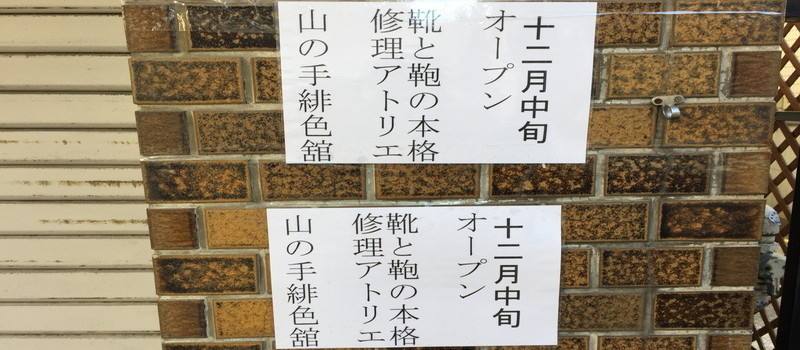 十二月中旬
オープン
靴と鞄の本格
修理アトリエ
山の手緋色舘
十二月中旬
オープン
靴と鞄の本格
修理アトリエ
山の手緋色舘